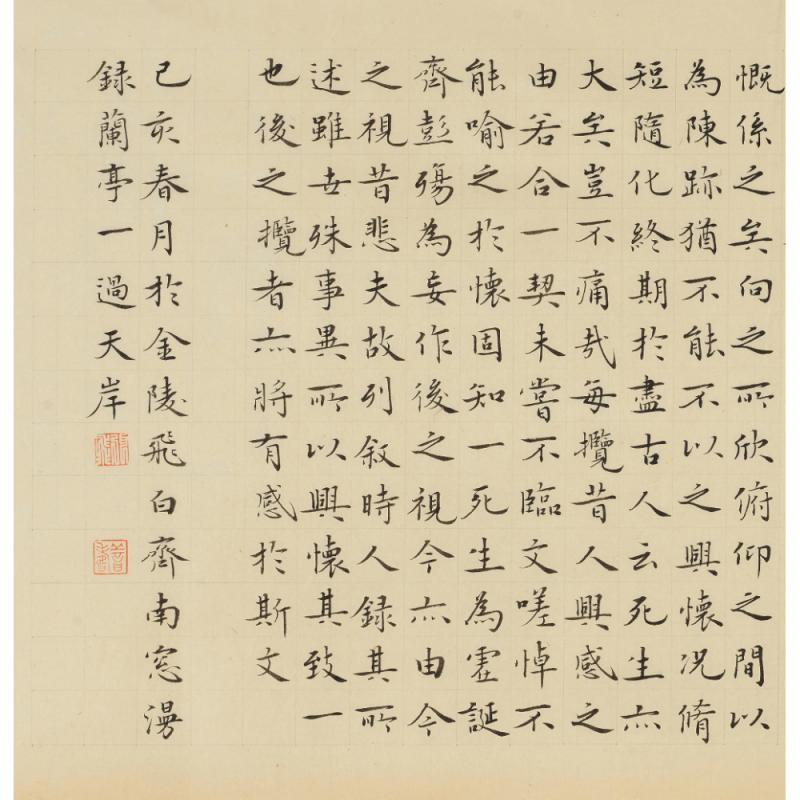 慨係之矣向之所欣俯仰之間以
為陳跡猶不能不以之興懷况脩
短隨化終期於盡古人云死生亦
大矣豈不痛哉每攬昔人興感之
由若合一契未嘗不臨文嗟悼不
能喻之於懷固知一死生為虛誕
齊彭殤為妄作後之視今亦由今
之視昔悲夫故列叙時人錄其所
述雖世殊事異所以興懷其致一
也後之攬者亦將有感於斯文
己亥春月於金陵飛白齋南窓漫
録蘭亭一過天岸